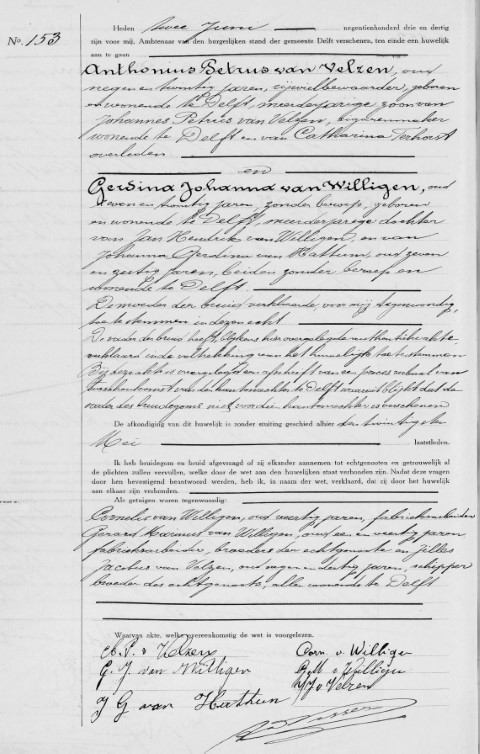 Heden twee Juni negentienhonderd drie en dertig
No. 153
zijn voor mij, Ambtenaar van den burgerlijken stand der gemeente Delft verschenen, ten einde een huwelijk
aan te gaan
Anthonius Petrus van Velzen, oud
negen en twintig jaren, rijwielbewaarder, geboren
en wonende te Delft, meerderjarige zoon van
Johannes Petrus van Velzen, sigarenmaker
wonende te Delft en van Catharina Terhorst
overleden
en
Gerdina Johanna van Willigen, oud
en twintig jaren, zonder beroep, geboren
en wonende te Delft, meerderjarige dochter
van Jan Hendrik van Willigen, en van
Johanna Gerdina van Hattum, oud zeven
en zestig jaren, beiden zonder beroep en
wonende te Delft.
De moeder der bruid verklaarde, voor mij tegenwoordig,
toe te stemmen in dezen echt.
De vader der bruid heeft, blijkens hier overgelegde authentieke akte
verklaard in de voltrekking van het huwelijk toe te stemmen
Bij deze akte is overgelegd een afschrift van een proces verbaal van
van den kantonrechter te Delft waaruit blijkt dat de
vader des bruidegoms niet voor den kantonrechter is verschenen
De afkondiging van dit huwelijk is zonder stuiting geschied alhier den twintigsten
Mei laatstleden.
Ik heb bruidegom en bruid afgevraagd of zij elkander aannemen tot echtgenooten en getrouwelijk al
de plichten zullen vervullen, welke door de wet aan den huwelijken staat verbonden zijn. Nadat deze vragen
door hen bevestigend beantwoord werden, heb ik, in naam der wet, verklaard, dat zij door het huwelijk
aan elkaar zijn verbonden.
Als getuigen waren tegenwoordig:
Cornelis van Willigen, oud veertig jaren, fabrieksarbeider
Gerard van Willigen, oud een en veertig jaren
fabrieksarbeider, broeders der echtgenoote en Jilles
Jacobus van Velzen, oud negen en dertig jaren, schipper
broeder des echtgenoots, allen wonende te Delft
Waarvan akte, welke overeenkomstig de wet is voorgelezen.
A. P. v Velzen
Corn. v. Willigen
G. J. van Willigen
G. M. v. Willigen
J. J. v Velzen
J G van Hattum